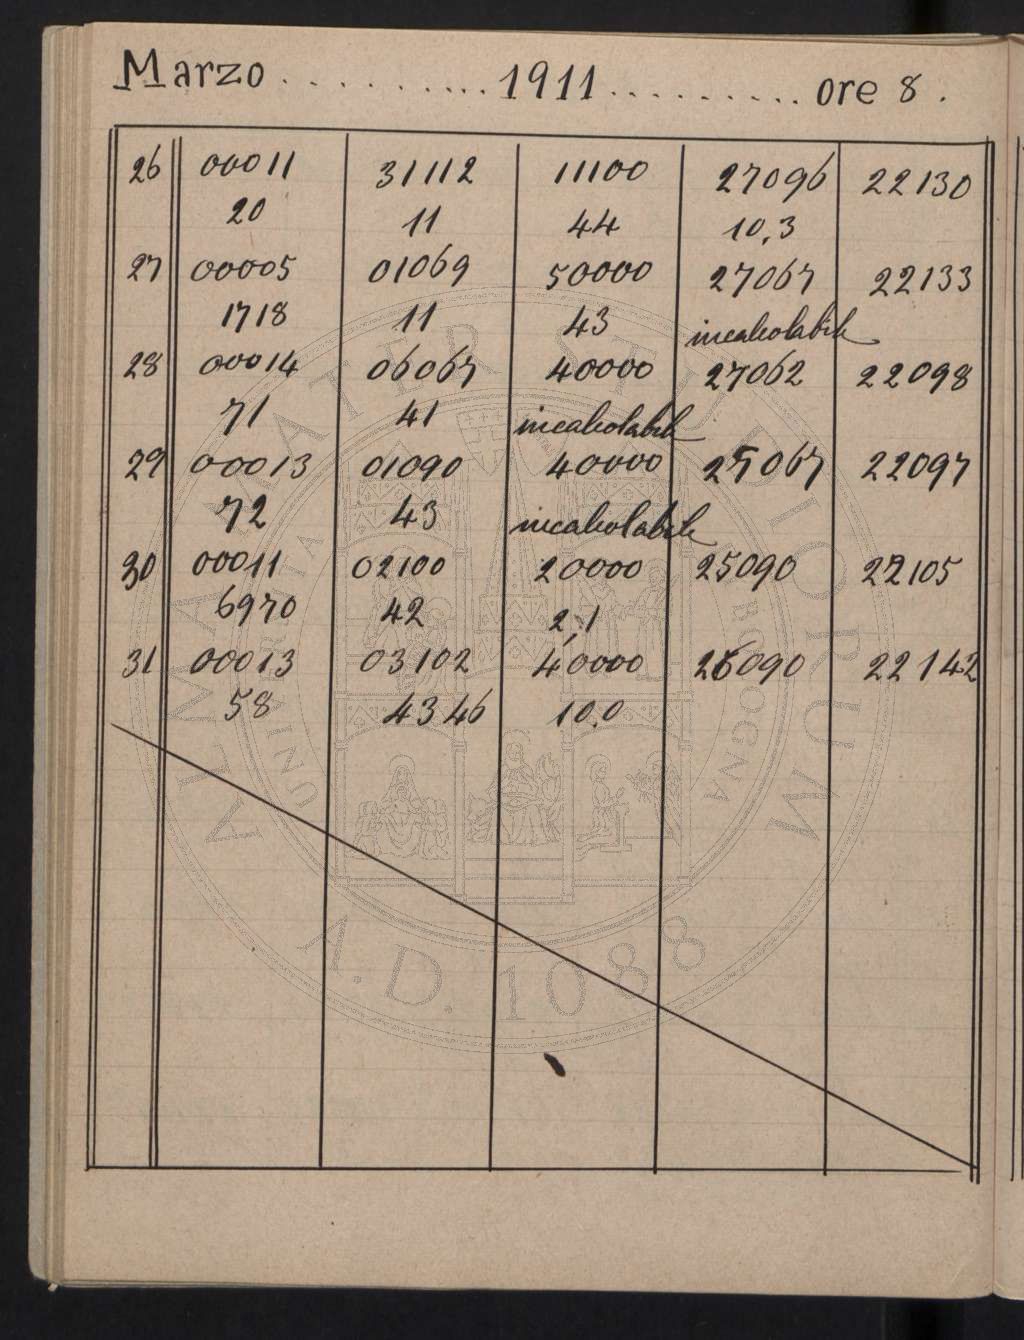 Marzo . . . . . . . . . . . 1911 . . . . . . . . . . ore 8 .
26 00011 31112 11100 27096 22130
20 11 44 10,3
27 00005 01069 50000 27067 22133
1718 11 43 incalcolabile
28 00014 06067 40000 27062 22098
71 41 incalcolabile
29 00013 01090 40000 27067 22097
72 43 incalcolabile
30 00011 02100 20000 25090 22105
6970 42 2,1
31 00013 03102 40000 26090 22142
58 4346 10,0
ALMA MATER STUDIORUM
UNIVERSITÀ DI BOLOGNA
A.D. 1088